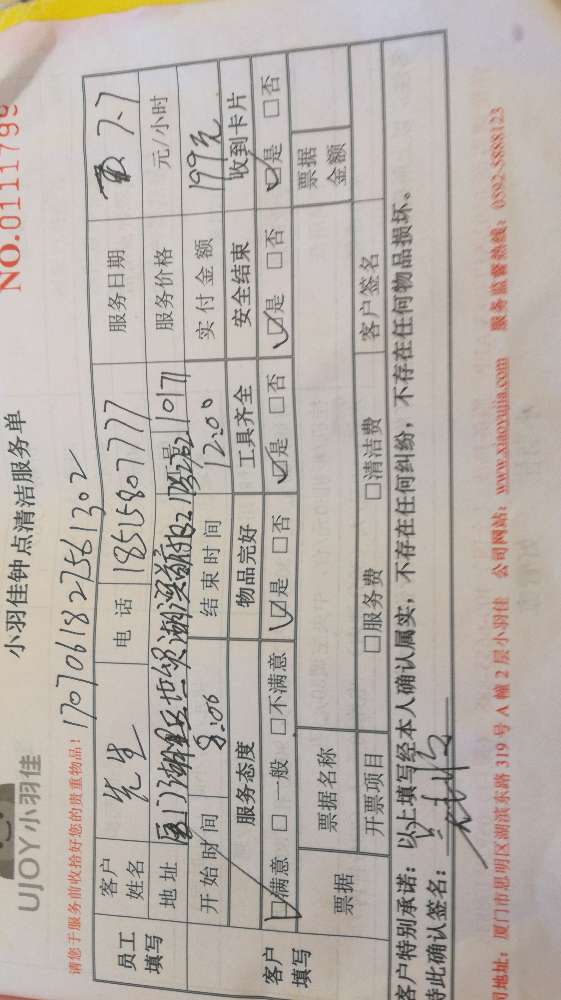 UJOY小羽佳
小羽佳钟点清洁服务单
NO.0111799
请您于服务前收拾好您的贵重物品!
17070618275561302
员工填写
客户姓名 先生 电话 18515807777 服务日期 7.7
地址 厦门湖里区世贸湖滨 10171 服务价格 元/小时
开始时间 8:00 结束时间 12:00 实付金额 199元
客户填写
服务态度 物品完好 工具齐全 安全结束 收到卡片
☑满意 □一般 □不满意 ☑是 □否 ☑是 □否 ☑是 □否 ☑是 □否
票据 票据名称 票据金额
开票项目 □服务费 □清洁费 客户签名
客户特别承诺:以上填写经本人确认属实,不存在任何纠纷,不存在任何物品损坏。
特此确认签名:
司地址:厦门市思明区湖滨东路319号A幢2层小羽佳 公司网站:www.xiaoyujia.com 服务监督热线:0592-5888123